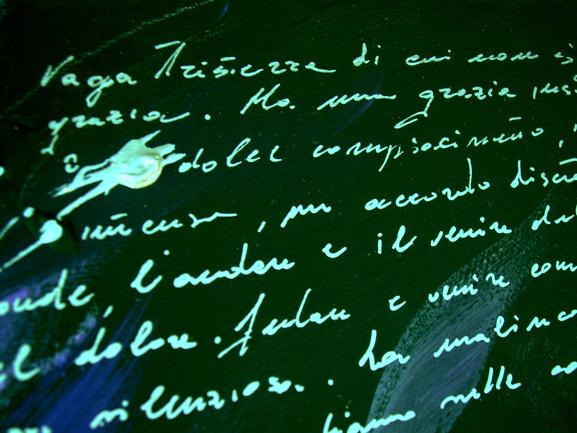 Vaga Tristezza di cui non è
grazia. Ma una grazia
dolce compiacimento,
intenso, un accordo
onde, l'andare e il venire del
el dolore. Andare e venire com
silenzioso. La malinco
nelle